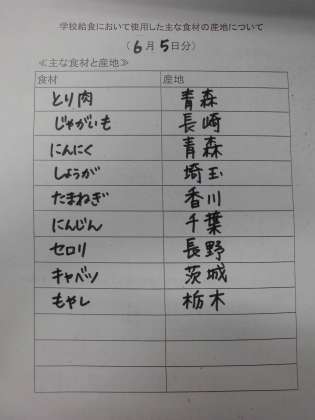 学校給食において使用した主な食材の産地について
(6月5日分)
≪主な食材と産地≫
食材 産地
とり肉 青森
じゃがいも 長崎
にんにく 青森
しょうが 埼玉
たまねぎ 香川
にんじん 千葉
セロリ 長野
キャベツ 茨城
もやし 栃木